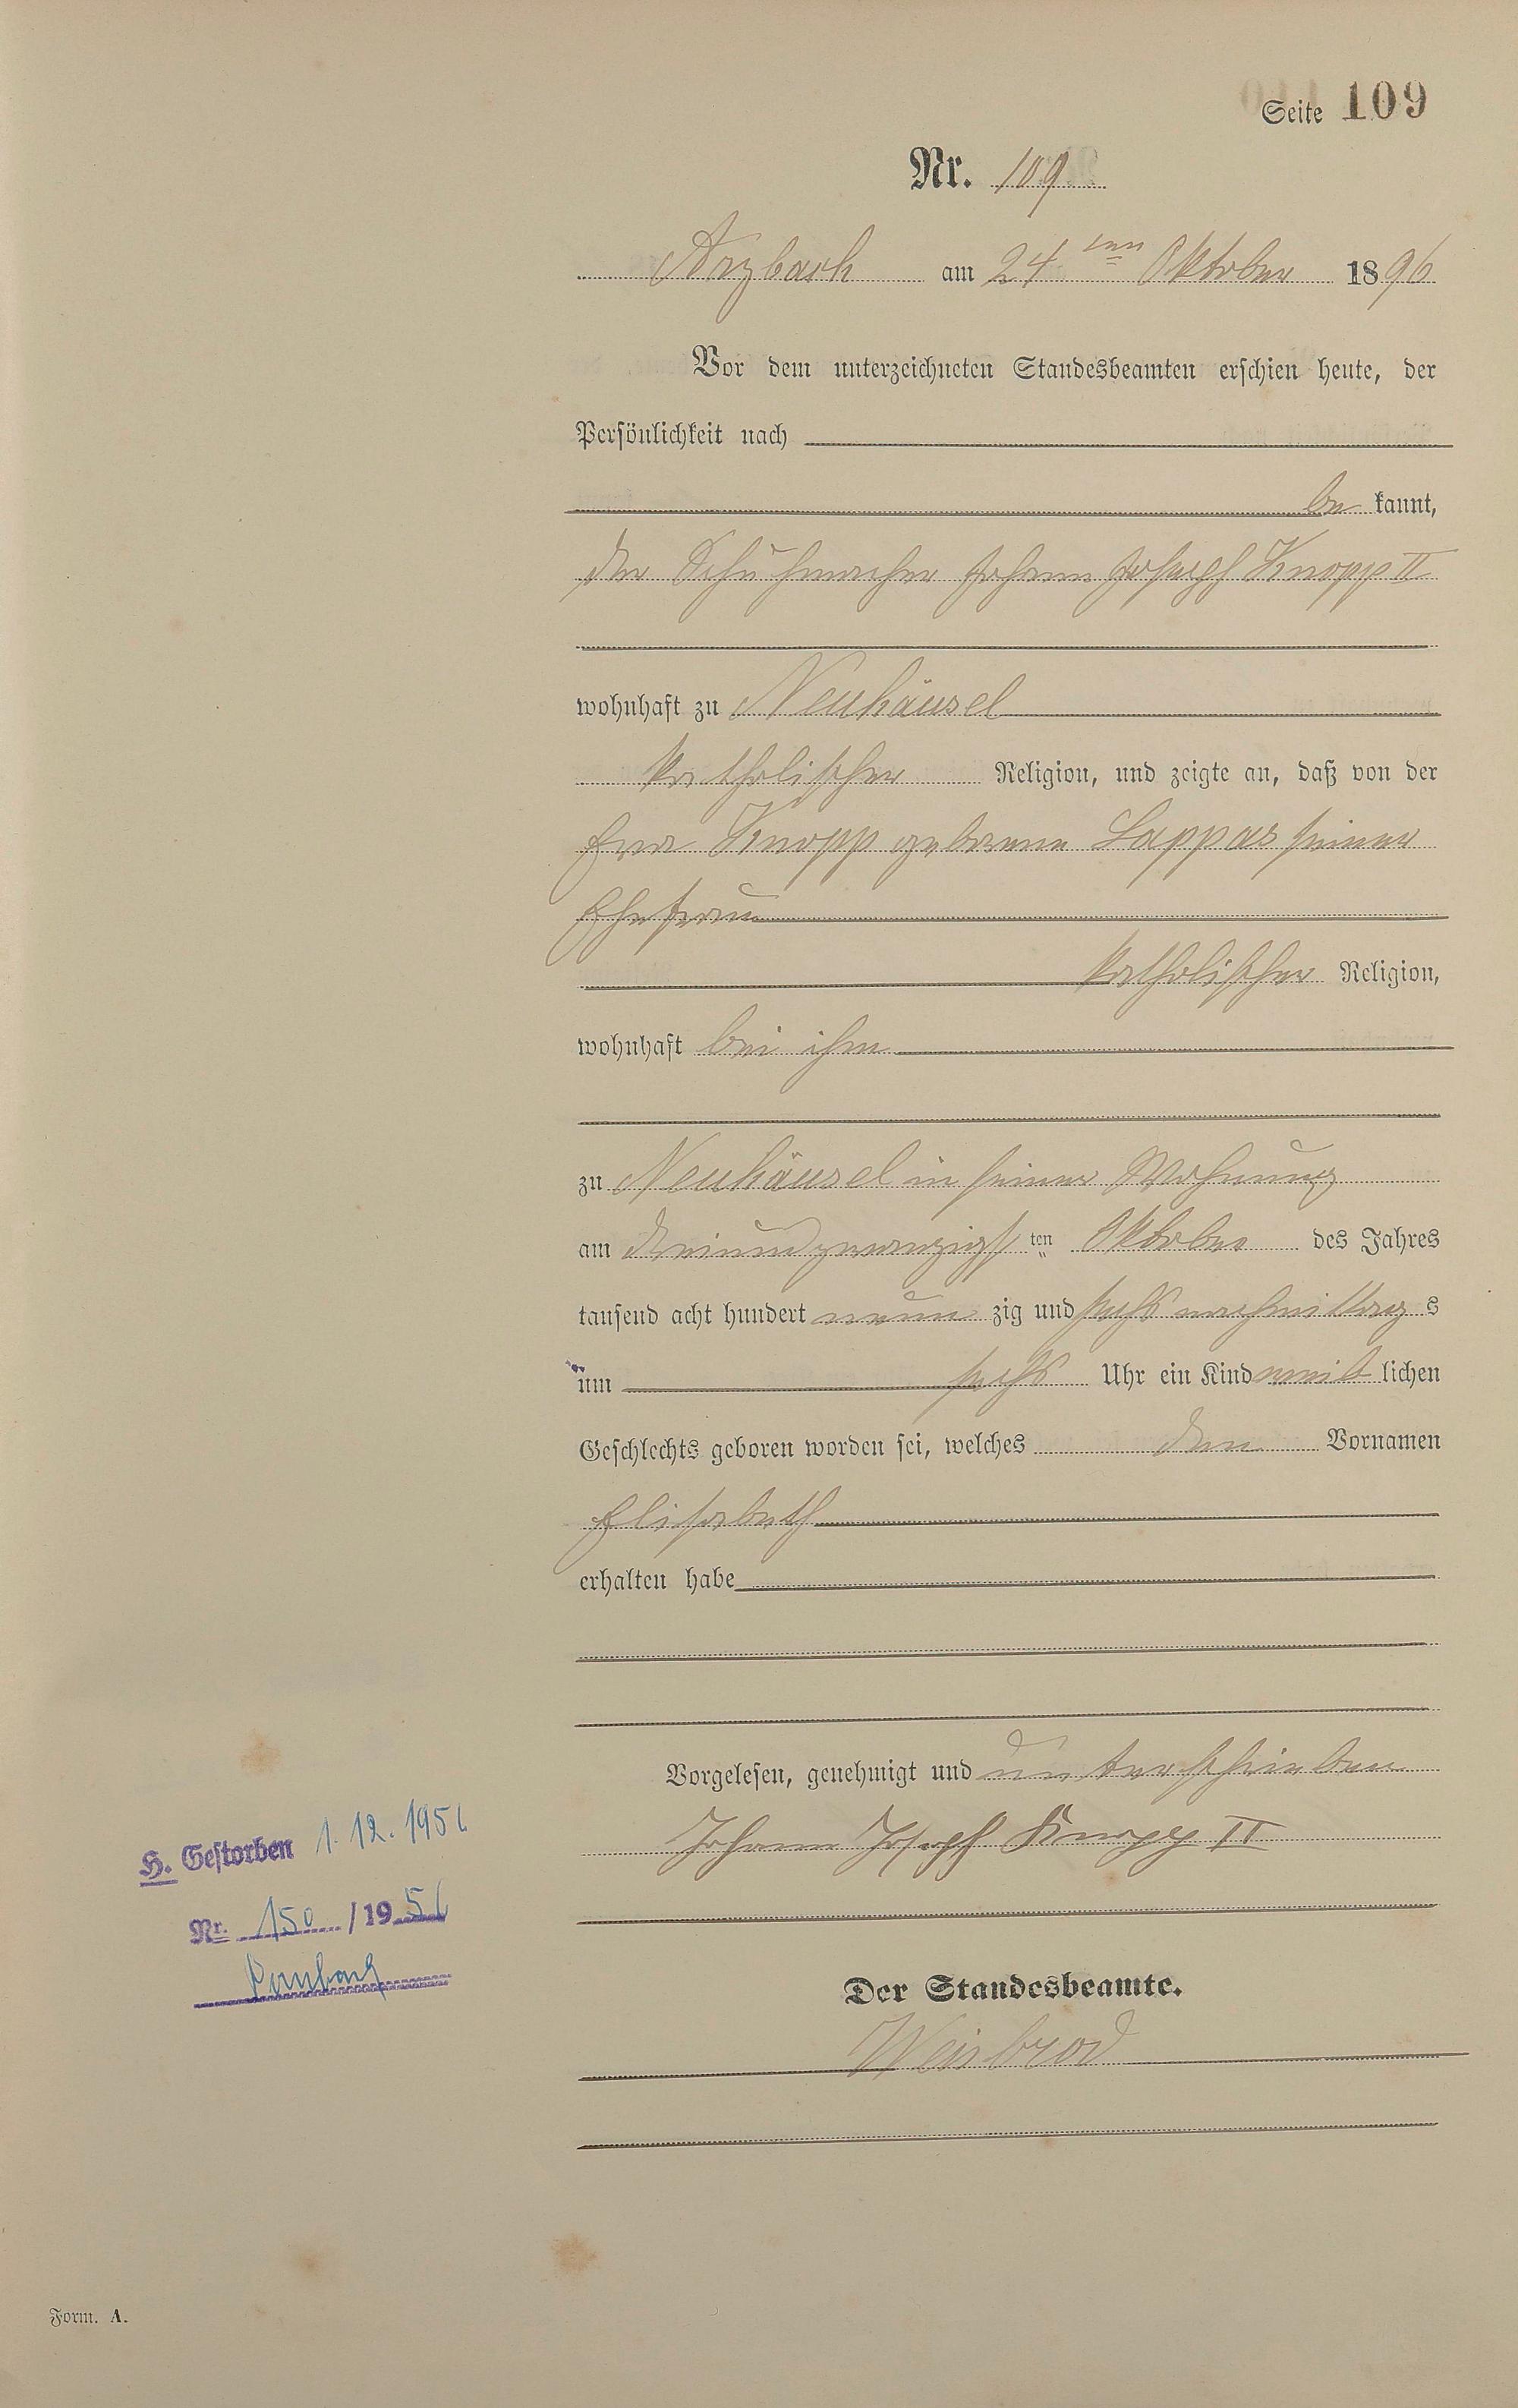 Seite 109
Nr. 109
Arzbach am 24ten Oktober 1896
Vor dem unterzeichneten Standesbeamten erschien heute, der
Persönlichkeit nach
be kannt,
der Schuhmacher Johann Joseph Knopp II
wohnhaft zu Neuhäusel
katholischer Religion, und zeigte an, daß von der
Eva Knopp geborene Lappas seiner
Ehefrau
katholischer Religion,
wohnhaft bei ihm
zu Neuhäusel in seiner Wohnung
am dreiundzwanzigsten Oktober des Jahres
tausend acht hundert neun zig und sechs nachmittag s
um sechs Uhr ein Kind weib lichen
Geschlechts geboren worden sei, welches den Vornamen
Elisabeth
erhalten habe
Vorgelesen, genehmigt und unterschrieben
Johann Joseph Knopp II
H. Gestorben 1. 12. 1956
Nr. 150 / 19 56
Der Standesbeamte.
Weisbrod
Form. A.